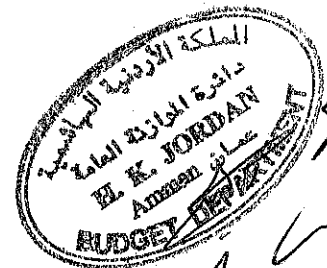 المملكة الأردنية الهاشمية
دائرة الموازنة العامة
H. K. JORDAN
Amman عمان
BUDGET DEPARTMENT